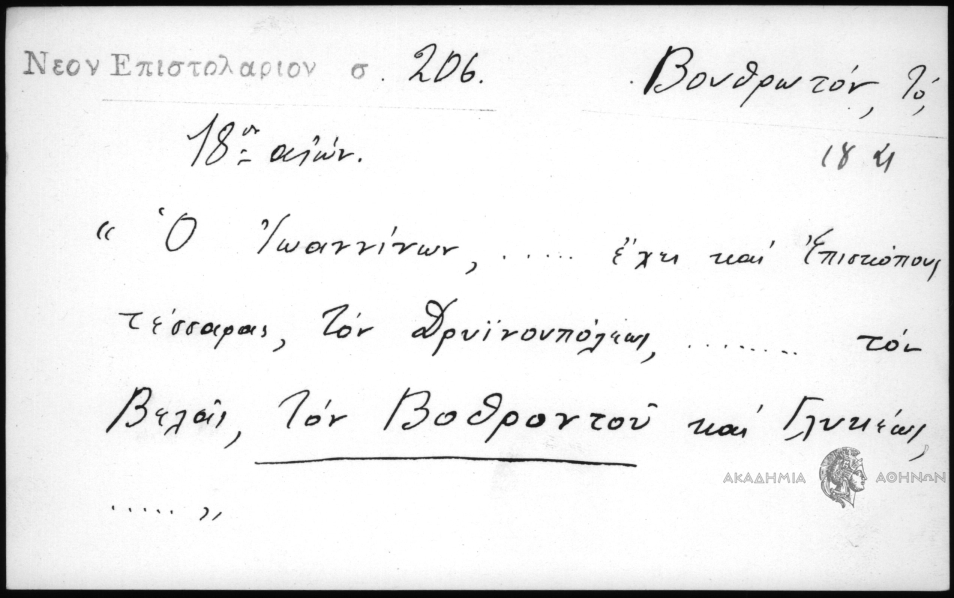 Νεον Επιστολαριον σ. 206. Βουθρωτόν, Τό,
18ος αἰών.
« Ὁ Ἰωαννίνων, ...... ἔχει καί Ἐπισκόπους
τέσσαρας, τόν Δρυϊνουπόλεως, ........ τόν
Βελᾶς, τόν Βοθροντοῦ καί Γλυκέως,
ΑΚΑΔΗΜΙΑ ΑΘΗΝΩΝ
..... »